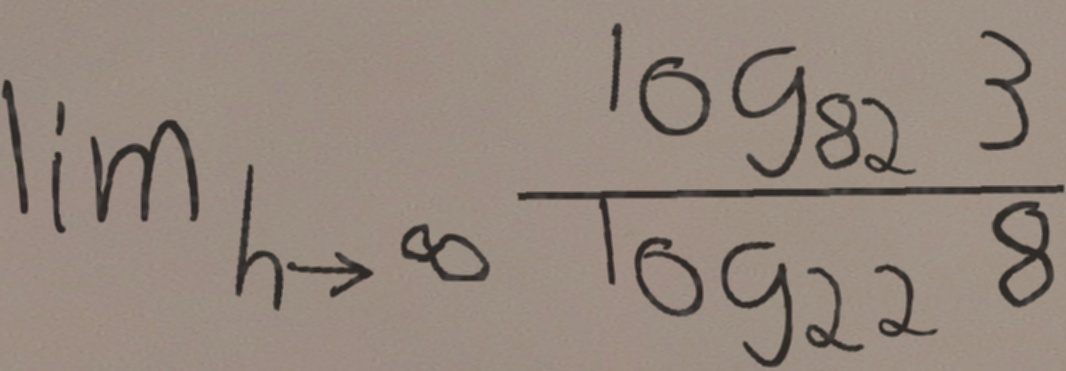 \lim_{h \to \infty} \frac{\log_{82} 3}{\log_{22} 8}